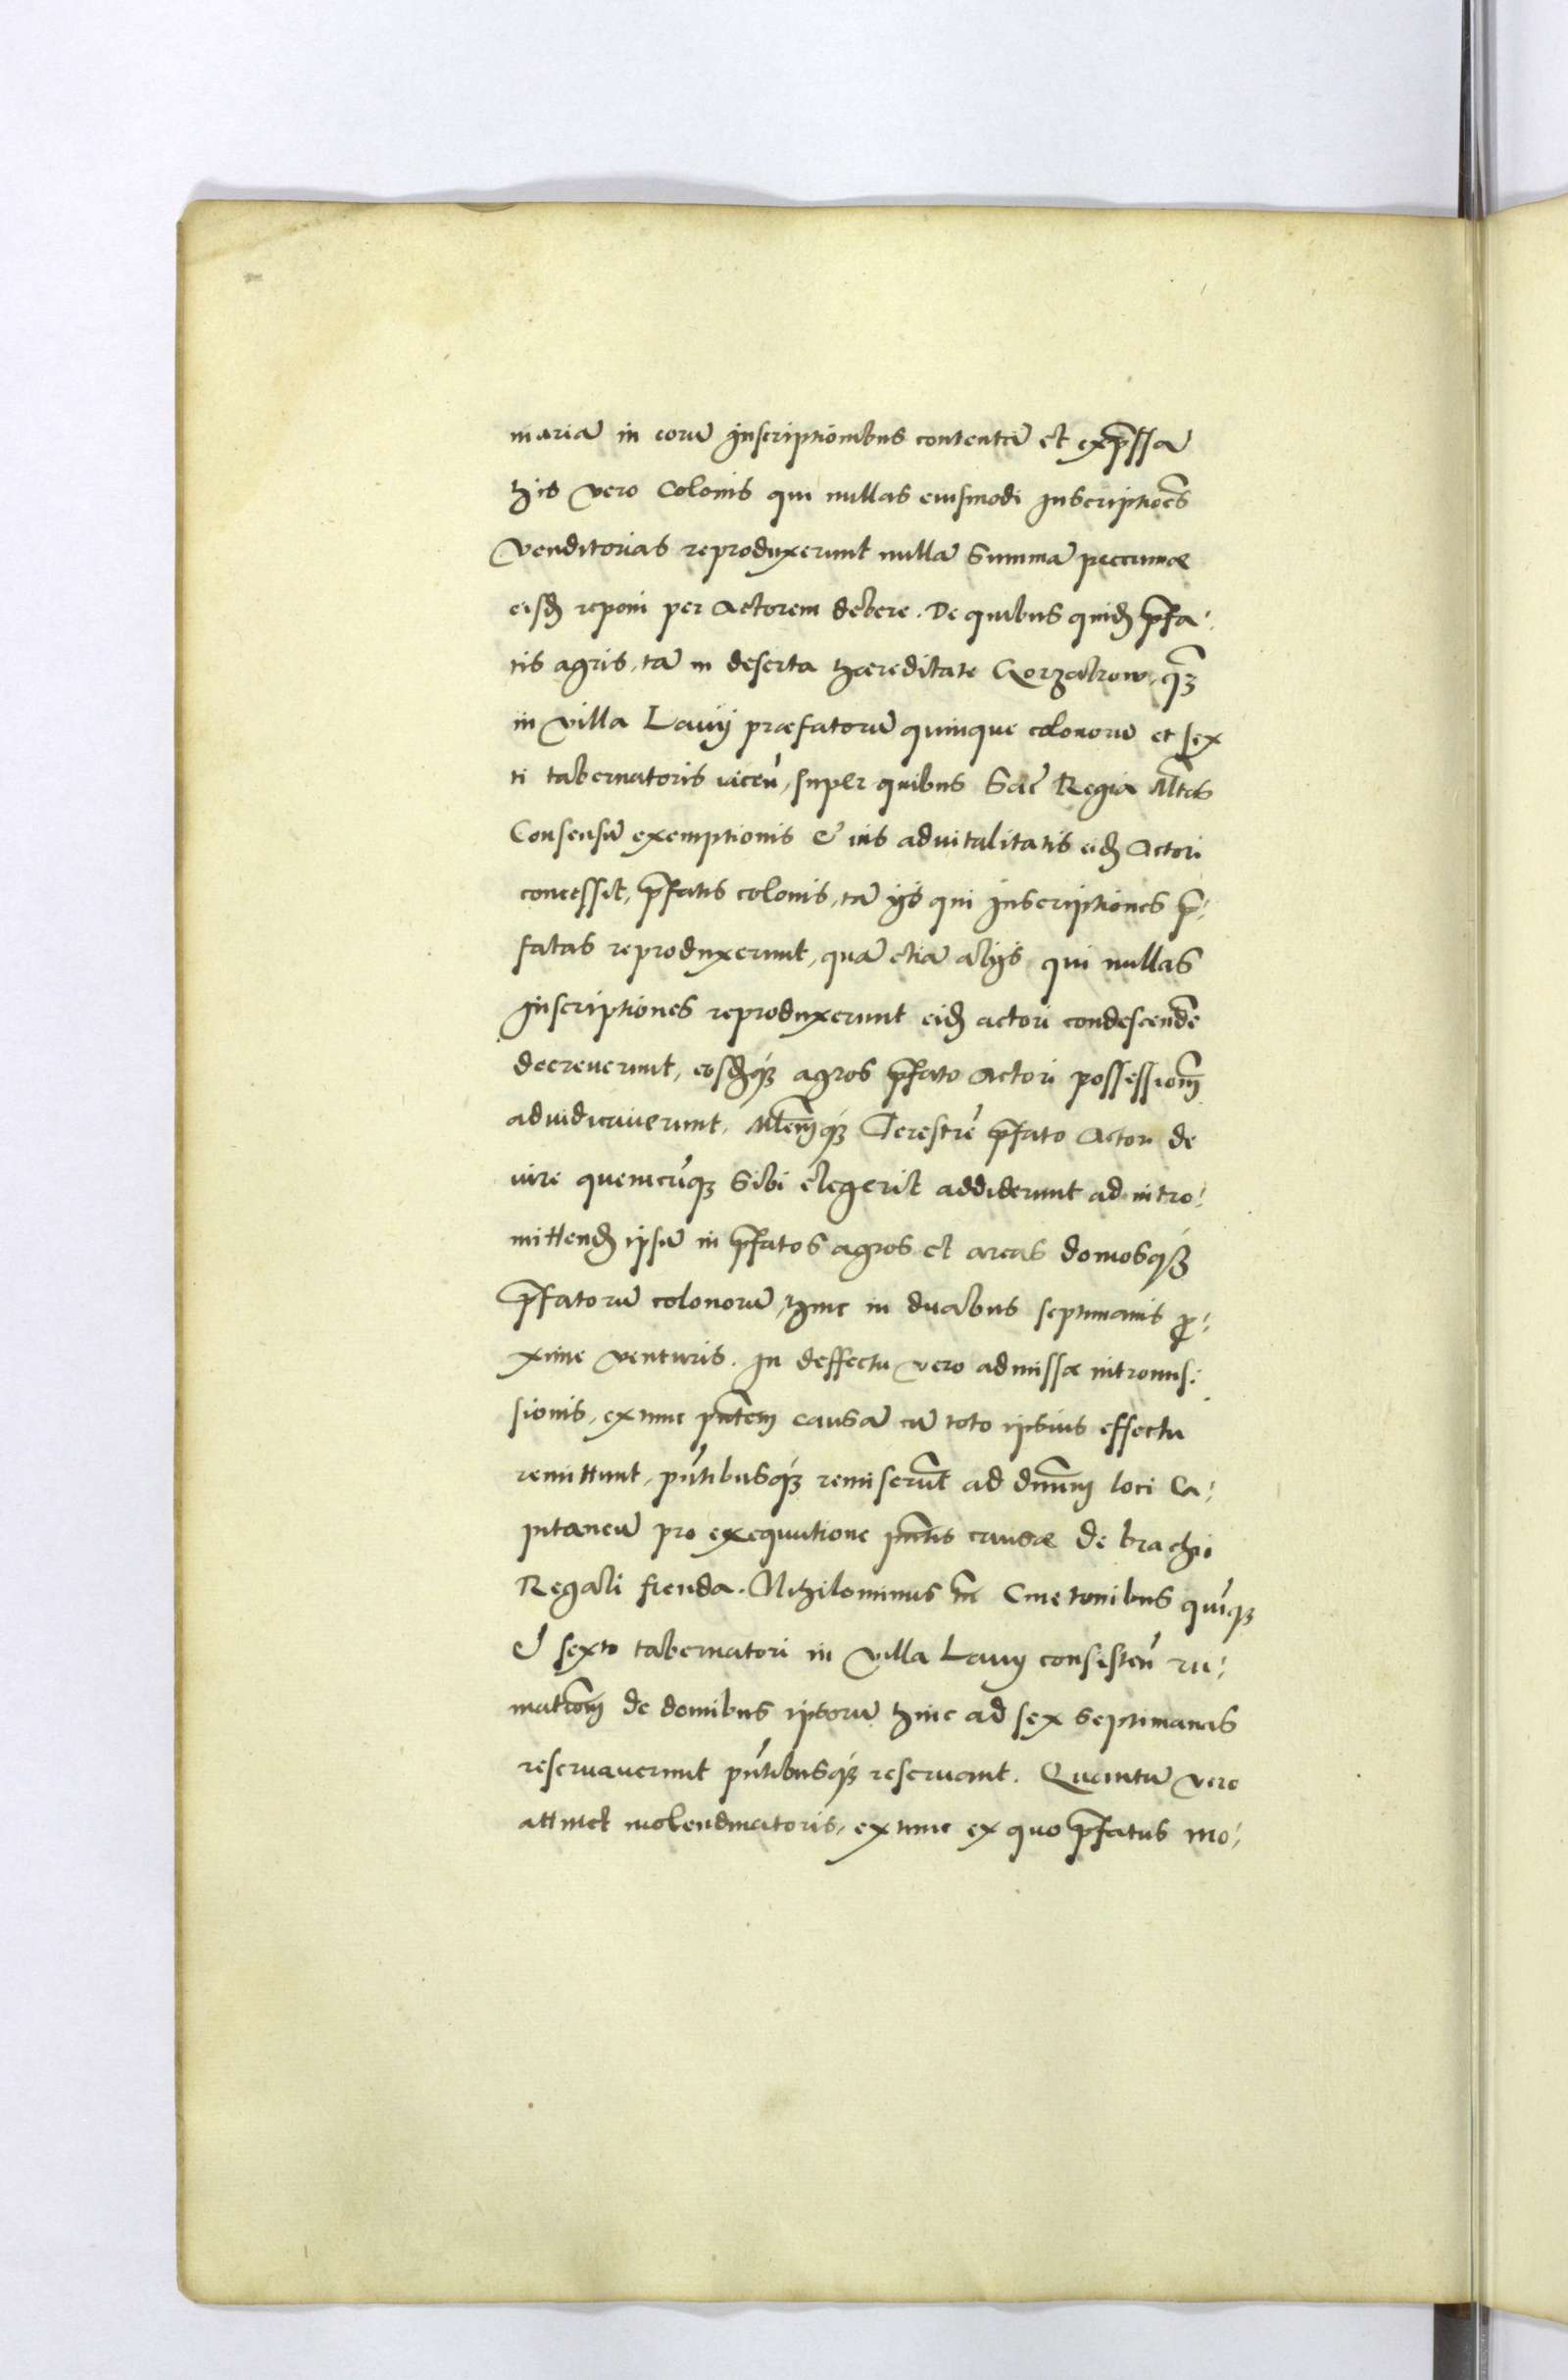 mariā in eorū Inscriptionibus contentā et exp̄ssā
his vero Colonis qui nullas eiusmodi Inscriptiōēs
Venditorias reproduxerunt nullā Summā pecuniæ
eisdꝫ reponi per Actorem debere. De quibus quidꝫ p̄fa⸗
tis agris, tā in deserta hæreditate Gorzabrow, qꝫ̄
in villa Lavij præfatorū quinque colonorū et sex
ti tabernatoris iaceñ, super quibus Sac̄ Regia Mt̄as
Consensū exemptionis & iuris advitalitatis eidꝫ Actori
concessit, p̄fatis colonis, tā ijs qui Inscriptiones p̄⸗
fatas reproduxerunt, quā etiā alijs qui nullas
Inscriptiones reproduxerunt eidꝫ actori condescendē
decreverunt, eosdꝫqꝫ agros p̄fato Actori possessiōm
adiudicaverunt, Mlēmqꝫ Terestrē p̄fato Actori de
iure quemcūqꝫ Sibi elegerit addiderunt ad intro⸗
mittendꝫ ipsū in p̄fatos agros et areas domosqꝫ
p̄fatorū colonorū, hinc in duabus septimanis ꝓ⸗
xime venturis. In deffectu vero admissæ intromis⸗
sionis, extunc pn̄tem causā cū toto ipsius effectu
remittunt, pn̄tibusqꝫ remiserūt ad dnūm loci Ca⸗
pitaneū pro exequutione pn̄tis causæ de brachio
Regali fienda. Nihilominus tn̄ Cmetonibus quīqꝫ
& sexto tabernatori in Villa Lavij consisteñ ru⸗
matiōm de domibus ipsorū hinc ad sex septimanas
reservaverunt pn̄tibusqꝫ reservant. Quantū vero
attinet molendinatoris, extunc ex quo p̄fatus mo⸗